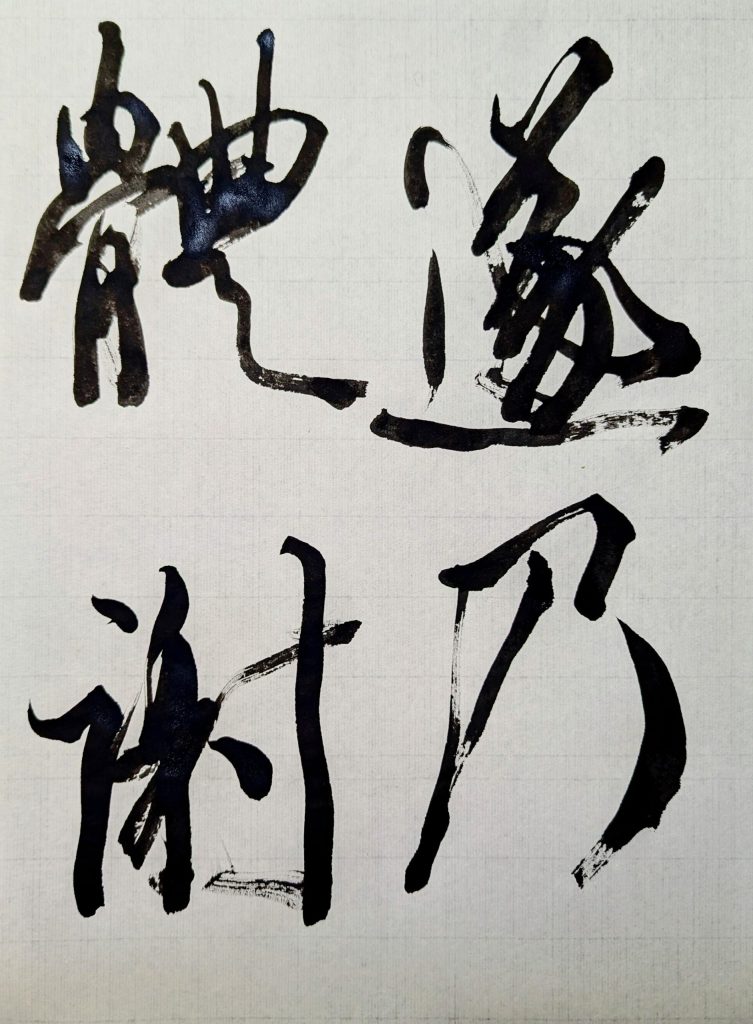 遂乃
體謝